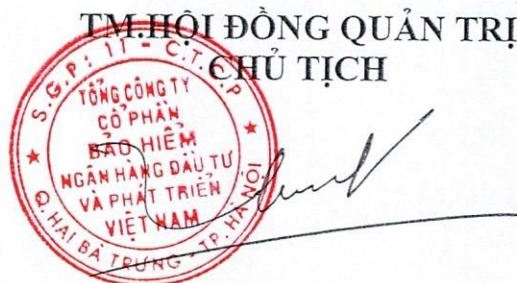 TM.HỘI ĐỒNG QUẢN TRỊ
CHỦ TỊCH
S.G.P: 11 - C.T.C.P
TỔNG CÔNG TY
CỔ PHẦN
BẢO HIỂM
NGÂN HÀNG ĐẦU TƯ
VÀ PHÁT TRIỂN
VIỆT NAM
Q.HAI BÀ TRƯNG - TP. HÀ NỘI